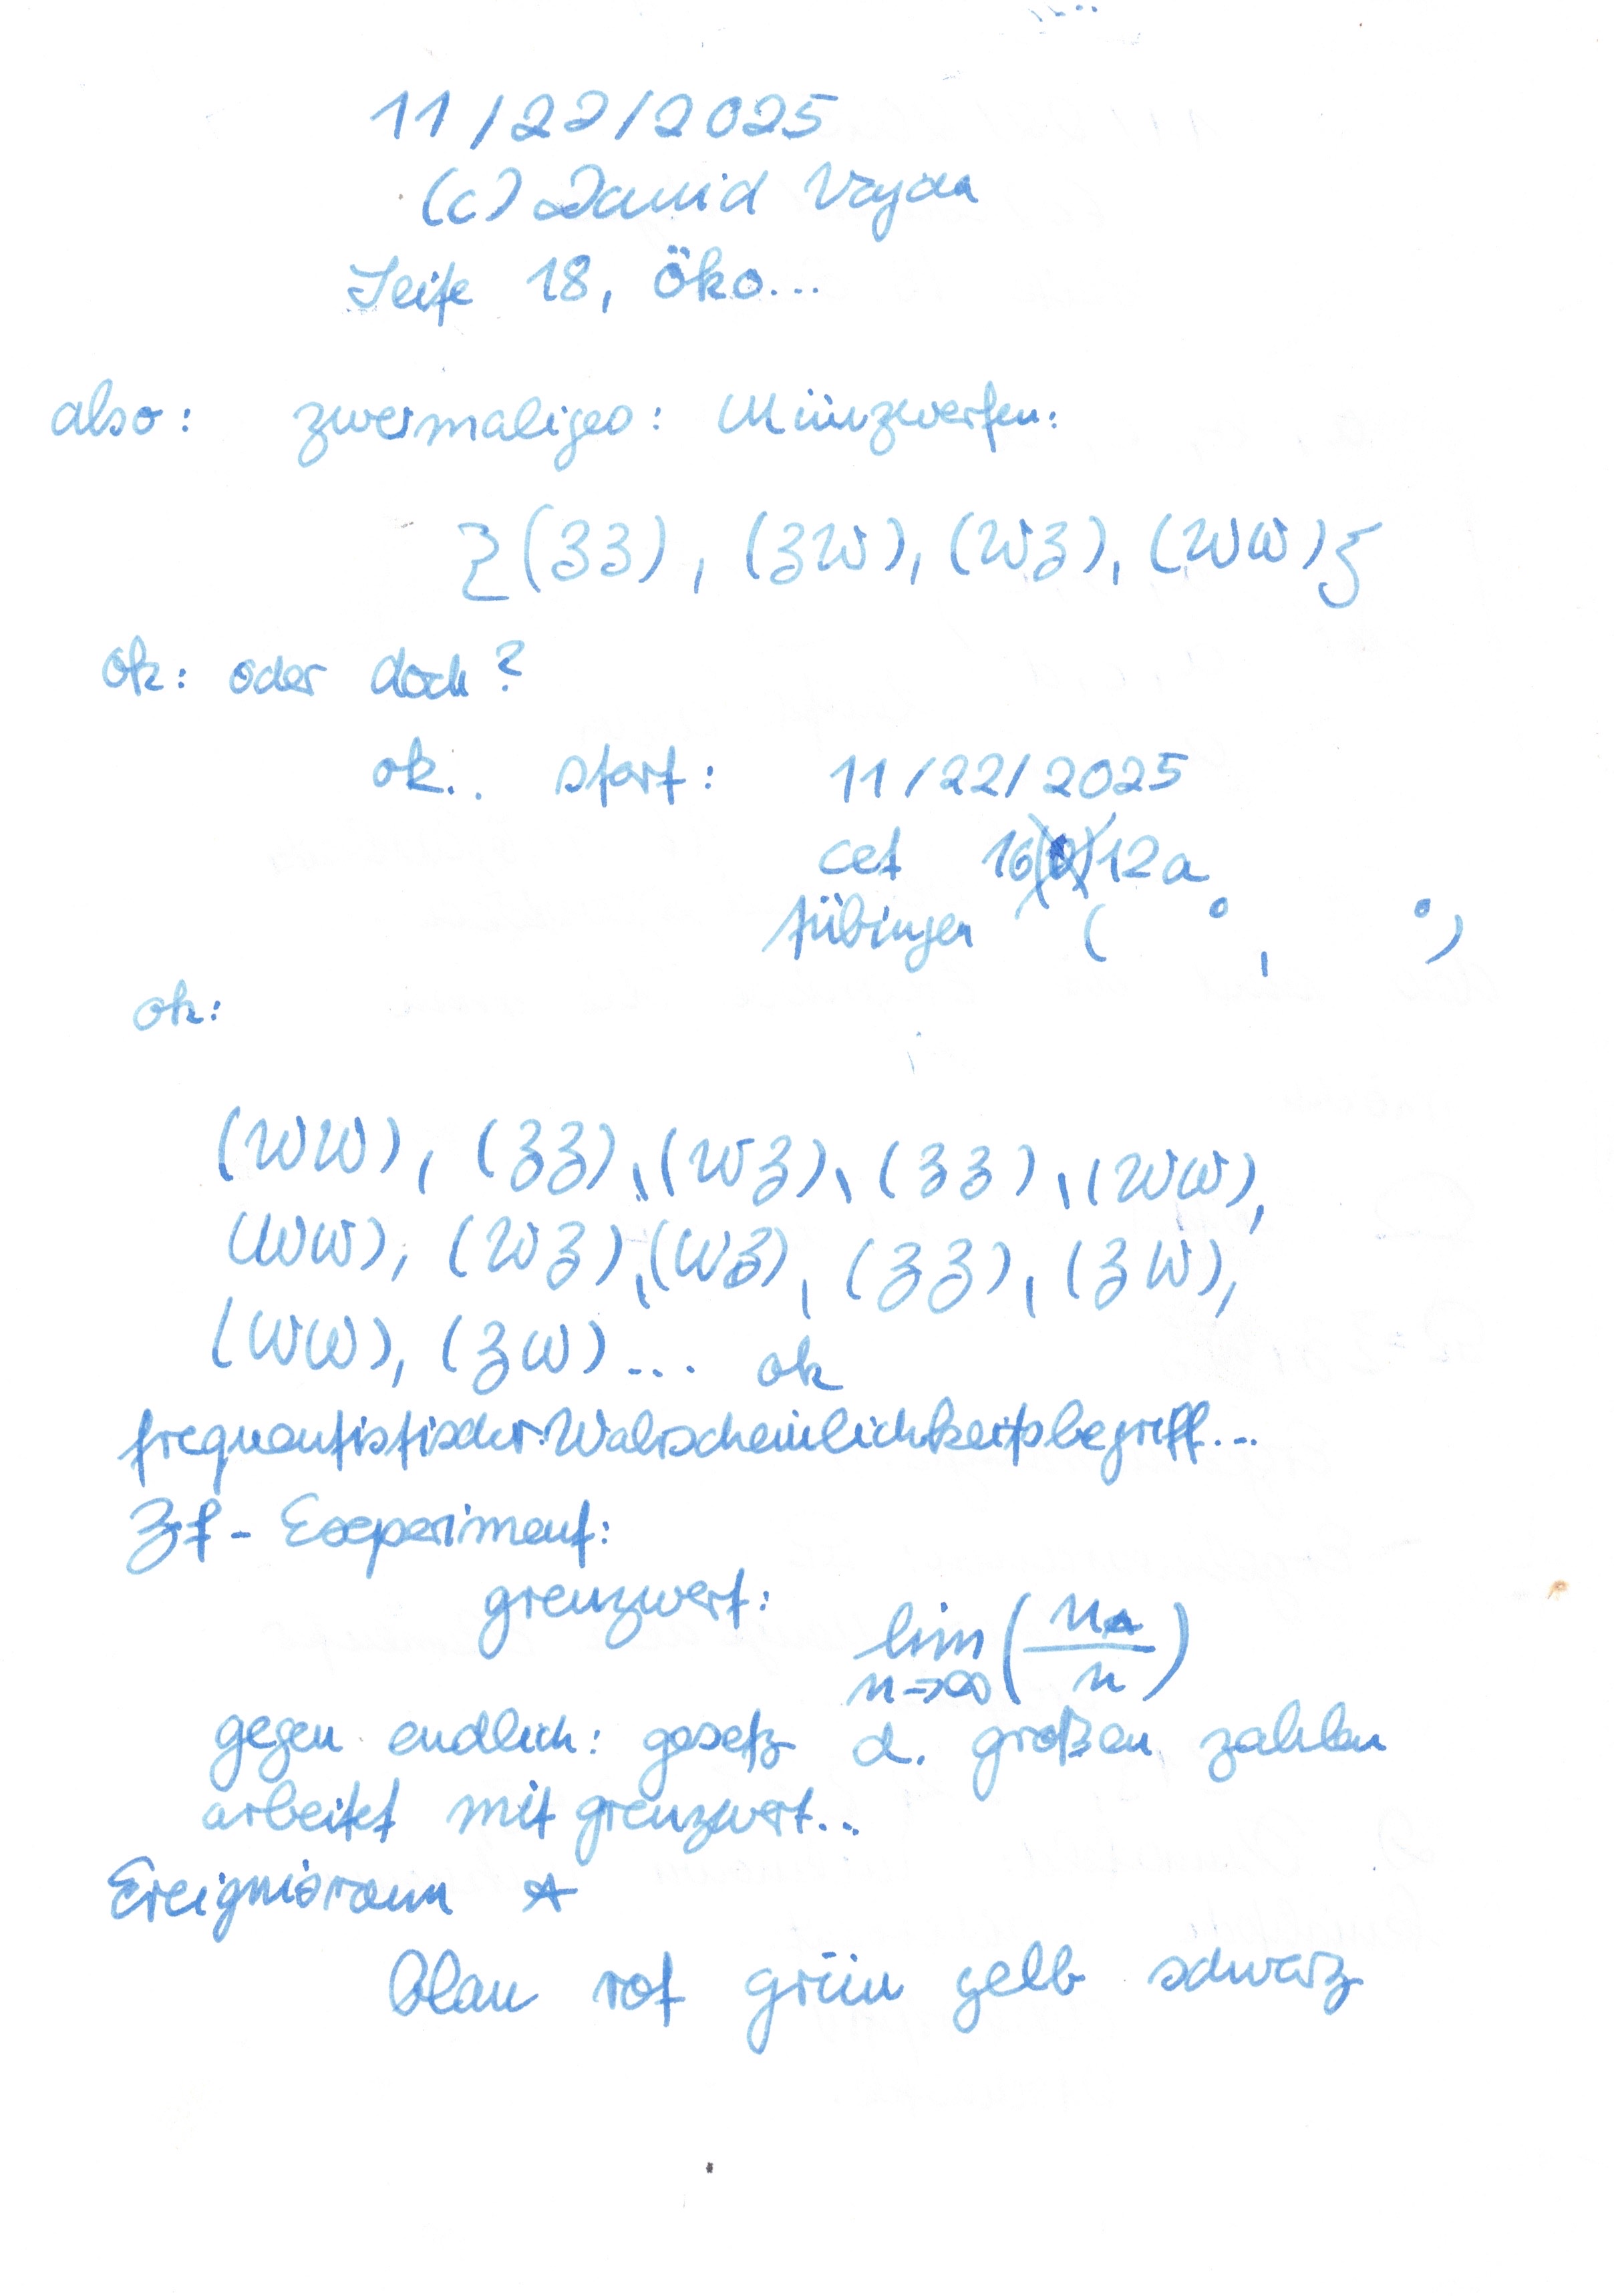 11/22/2025
(c) David Vajda
Seite 18, Öko...
also: zweimaliges: Münzwerfen:
{(ZZ), (ZW), (WZ), (WW)}
ok: oder doch?
ok.. start: 11/22/2025
cet 16 12a
tübingen ( ° , °)
ok:
(WW), (ZZ), (WZ), (ZZ), (WW),
(WW), (WZ), (WZ), (ZZ), (ZW),
(WW), (ZW)... ok
frequentistischer Wahrscheinlichkeitsbegriff...
Zf-Experiment:
grenzwert: lim n→∞ (n_A / n)
gegen endlich: gesetz d. großen zahlen
arbeitet mit grenzwert...
Ereignisraum A
blau rot grün gelb schwarz